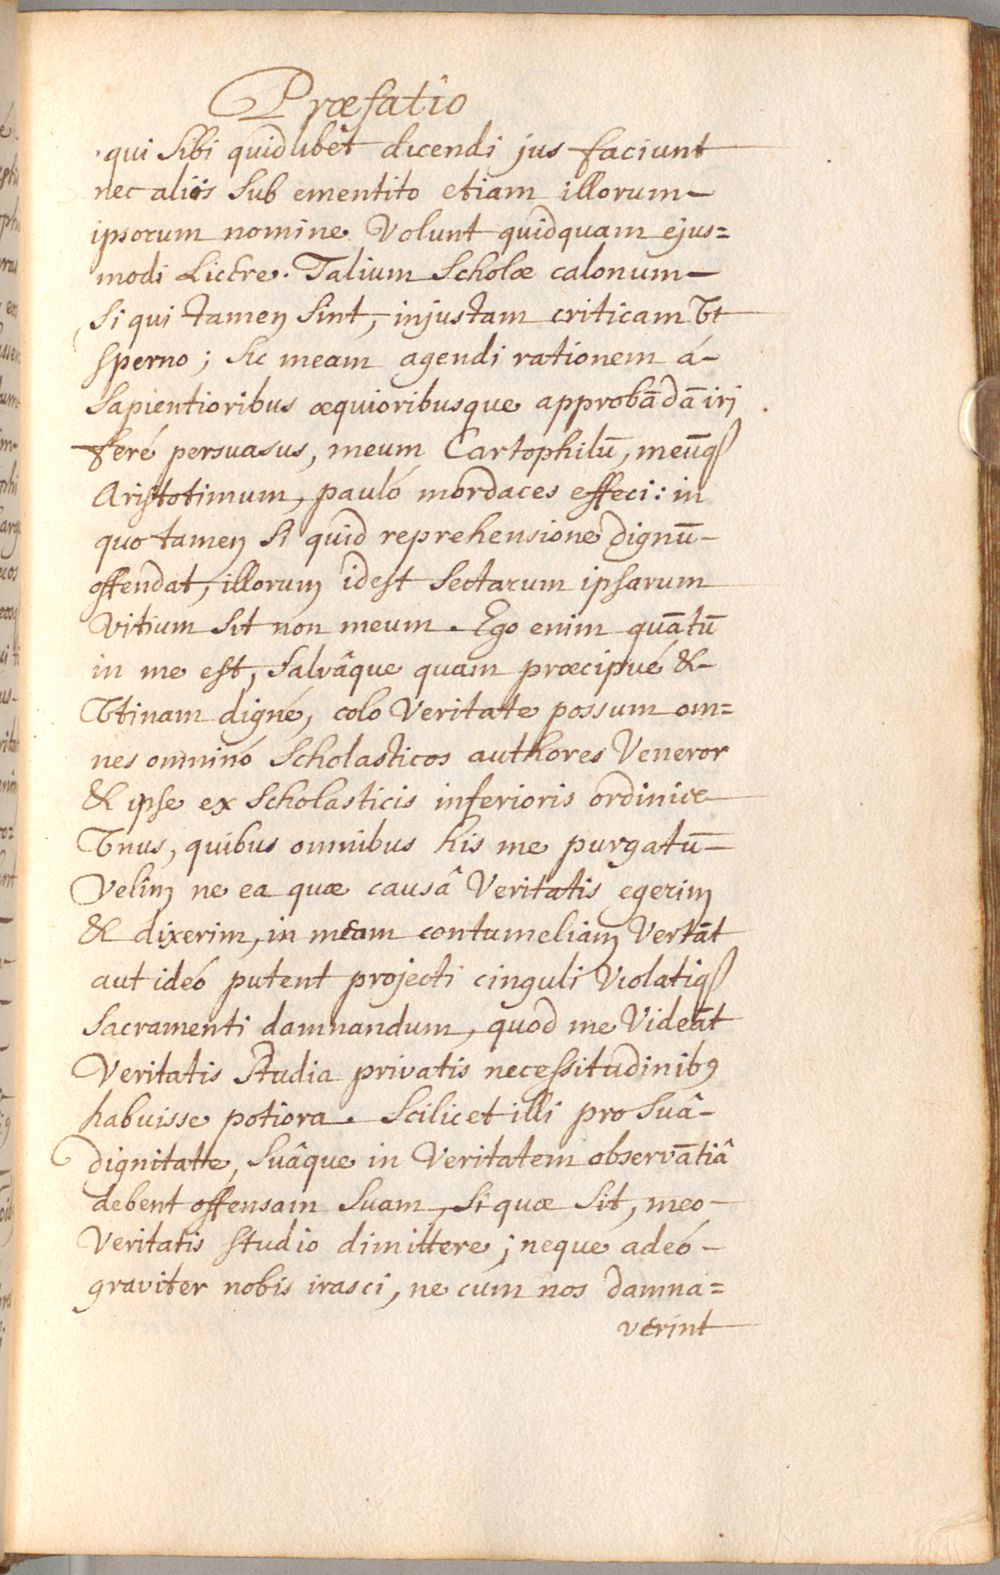 Præfatio
qui sibi quidlibet dicendi jus faciunt
nec aliis sub ementito etiam illorum
ipsorum nomine volunt quidquam ejus=
modi licere. Talium scholæ calonum
si qui tamen sint, injustam criticam vt
sperno; sic meam agendi rationem á
sapientioribus æquioribusque approbādā iri
feré persuasus, meum Cartophilū, meūq
Aristotimum, pauló mordaces effeci: in
quo tamen si quid reprehensione dignū
offendat, illorum idest sectarum ipsarum
vitium sit non meum. Ego enim quātū
in me est, salvâque quam præcipué &
vtinam digné, colo veritate possum om=
nes omninó scholasticos authores veneror
& ipse ex scholasticis inferioris ordinis
vnus, quibus omnibus his me purgatū
velim ne ea quæ causâ veritatis egerim
& dixerim, in meam contumeliam vertāt
aut ideó putent projecti cinguli violatiq
sacramenti damnandum, quod me videāt
veritatis studia privatis necessitudinib9
habuisse potiora. Scilicet illi pro suâ
dignitatte, suâque in veritatem observātiâ
debent offensam suam, si quæ sit, meo
veritatis studio dimittere; neque adeó
graviter nobis irasci, ne cum nos damna=
verint